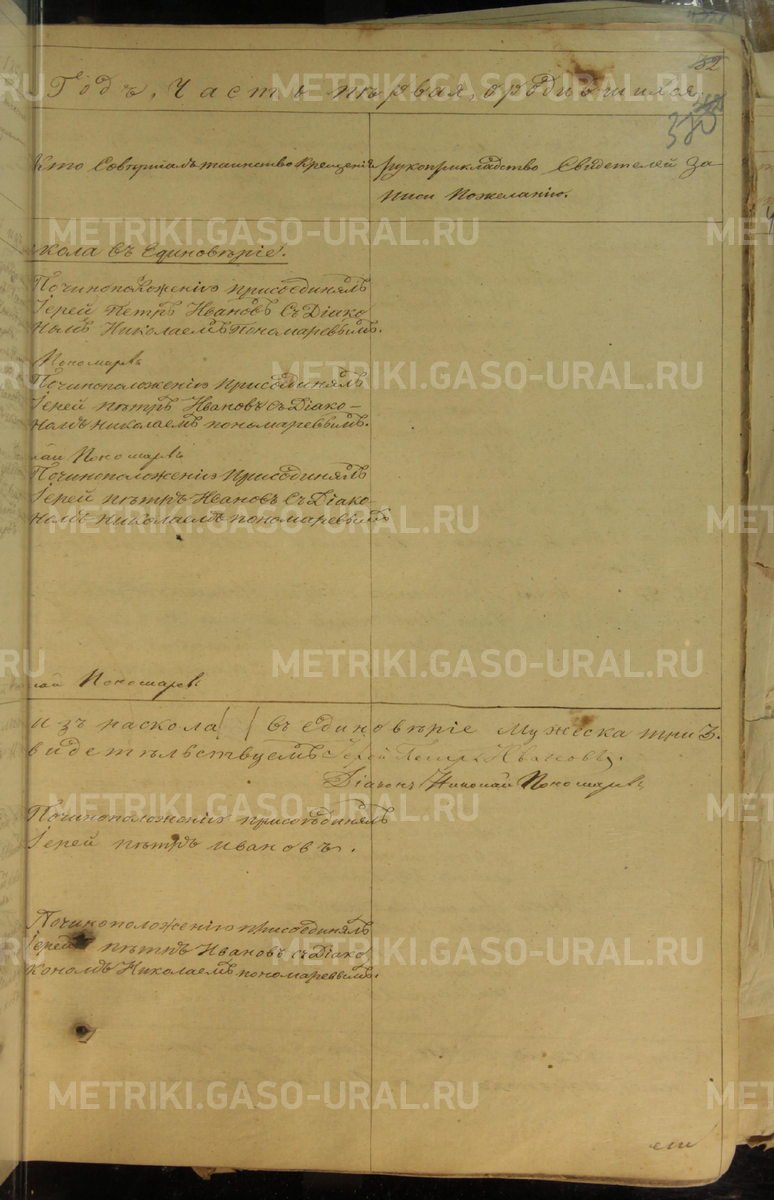 52
Годъ, Часть първая, ородившихся.
Кто Совершалъ таинство Крещенія
рукоприкладство Свидетелей За
писи Пожеланію.
скола въ Единовѣріе.
Починоположенію присоединялъ
Іерей петръ Ивановъ Съ Діако
номъ Николаемъ Пономаревымъ.
Пономаревъ
Починоположенію присоединялъ
Іерей пѣтръ Ивановъ съ Діако-
номъ николаемъ пономаревымъ.
лай Пономаревъ
Починоположенію Присоединялъ
Іерей пѣтръ Ивановъ Съ Діако-
номъ николаемъ пономаревымъ
лай Пономаревъ
изъ раскола въ единовѣріе мужеска три 3.
видетѣльствуемъ Іерей Петръ Ивановъ.
Діаконъ Николай Пономаревъ
Починоположенію присоѣдинялъ
Іерей пѣтръ ивановъ.
Починоположенію присоединялъ
Іерей пѣтръ Ивановъ съ Діако
кономъ Николаемъ пономаревымъ.
METRIKI.GASO-URAL.RU